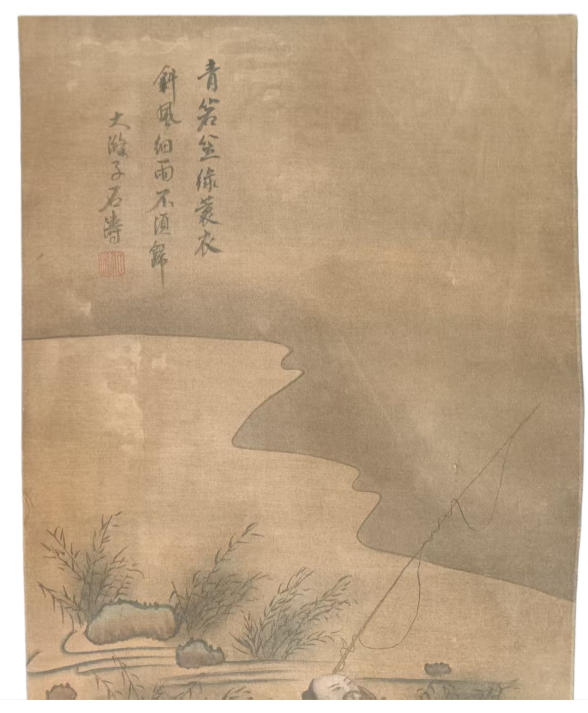 青箬笠綠蓑衣
斜風細雨不須歸
大滌子石濤